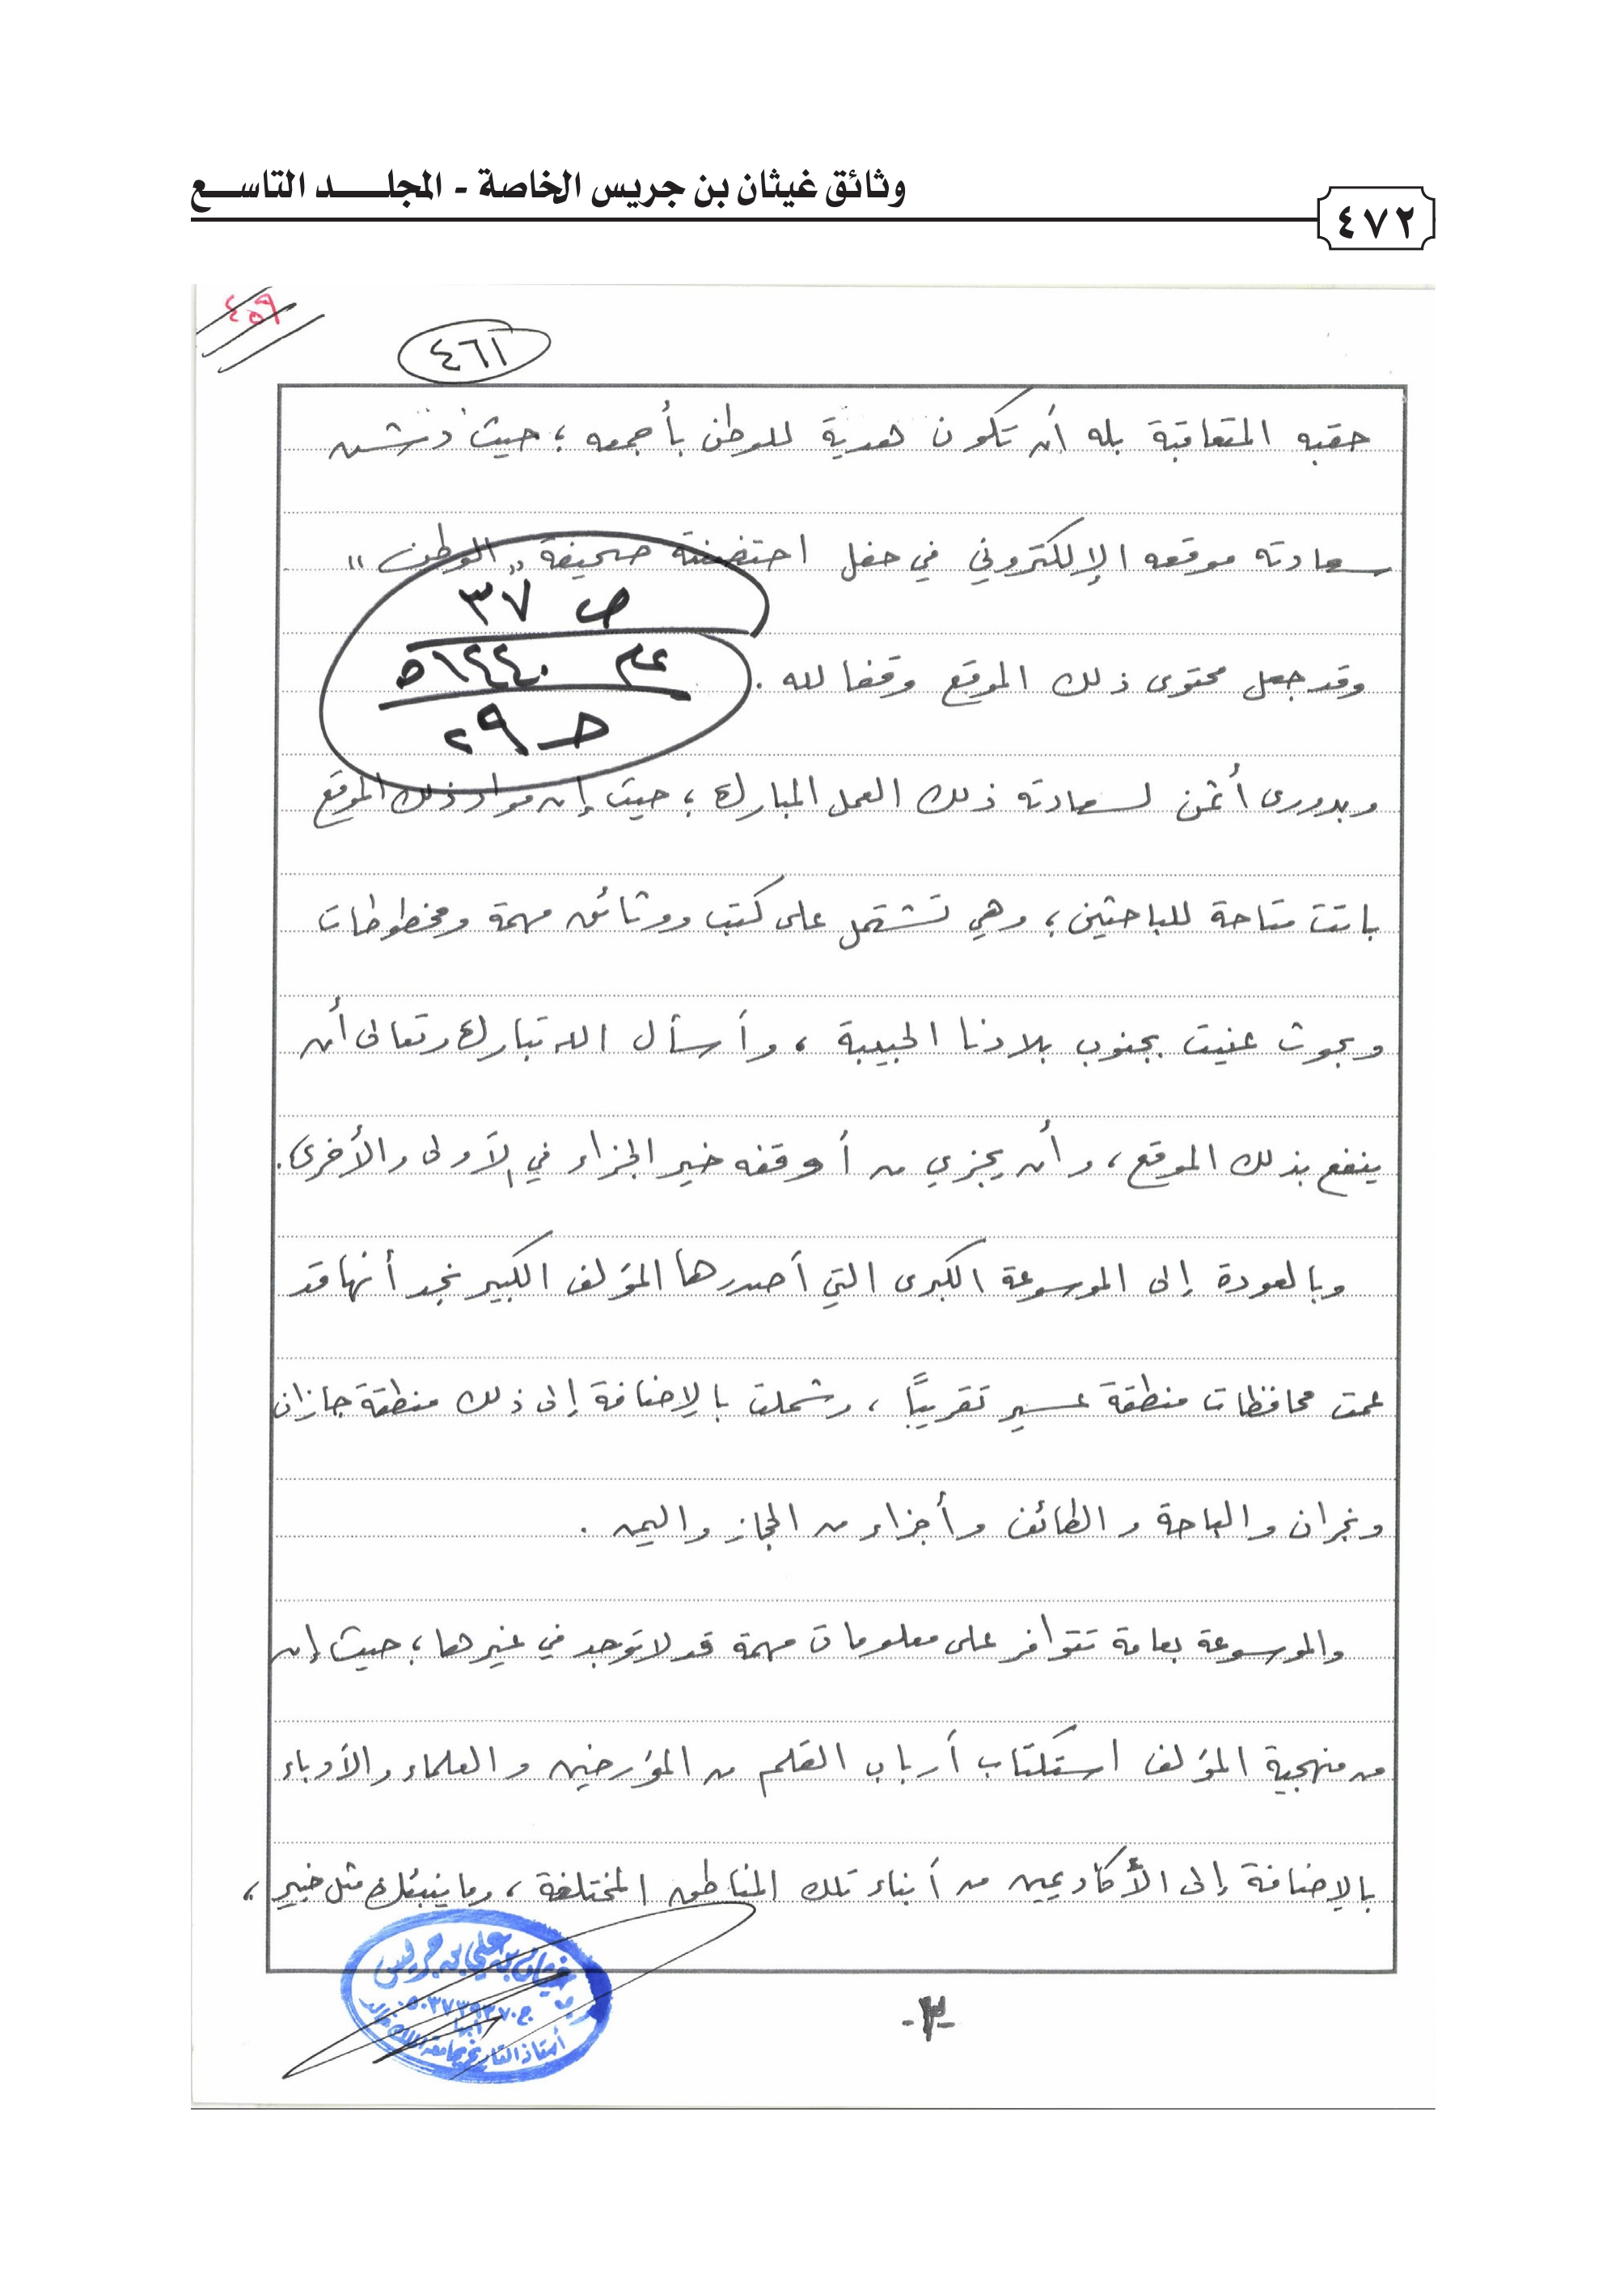 وثائق غيثان بن جريس الخاصة - المجلد التاسع
٤٧٢
٤٥٩
٤٦١
حقبه المتعاقبة بله أن تكون هدية للوطن بأجمعه ؛ حيث دشن
سعادته موقعه الإلكتروني في حفل احتضنته صحيفة " الوطن "
ص ٣٧
ح ٢٩
وقد جعل محتوى ذلك الموقع وقفا لله .
وبدورى أثمن لسعادته ذلك العمل المبارك ؛ حيث إن مواد ذلك الموقع
باتت متاحة للباحثين ؛ وهي تشتمل على كتب ووثائق مهمة ومخطوطات
وبحوث عنيت بجنوب بلادنا الحبيبة ، وأسأل الله تبارك وتعالى أن
ينفع بذلك الموقع ، وأن يجزي من أوقفه خير الجزاء في الأولى والأخرى .
وبالعودة إلى الموسوعة الكبرى التي أصدرها المؤلف الكبير نجد أنها قد
عمت محافظات منطقة عسير تقريبًا ، وشملت بالإضافة إلى ذلك منطقة جازان
ونجران والباحة والطائف وأجزاء من الحجاز واليمن .
والموسوعة بعامة تتوافر على معلومات مهمة قد لا توجد في غيرها ؛ حيث إن
من منهجية المؤلف استكتاب أرباب القلم من المؤرخين والعلماء والأدباء
بالإضافة إلى الأكاديمين من أبناء تلك المناطق المختلفة ، وما ينبئك مثل خبير ،
غيثان بن علي بن جريس
أبها
-٣-